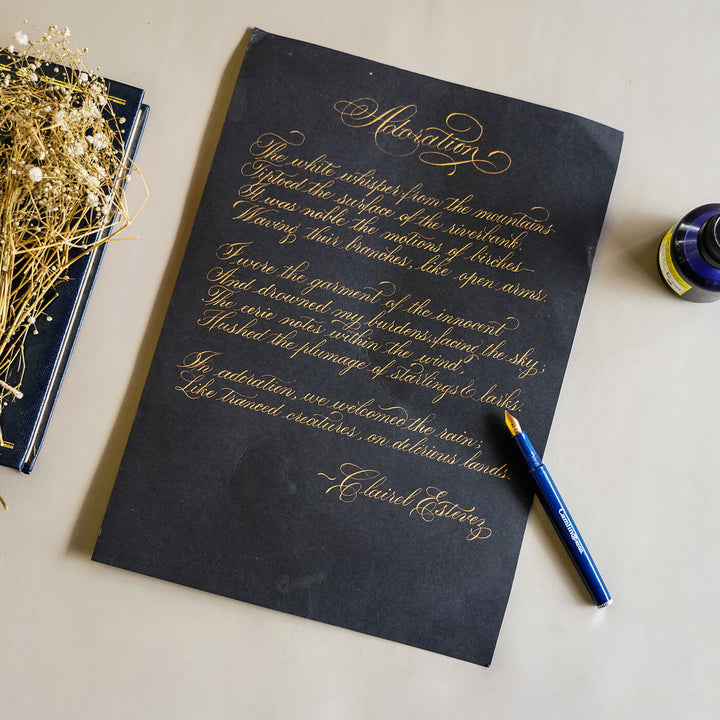 Adoration
The white whisper from the mountains
Tiptoed the surface of the riverbank;
It was noble the motions of birches—
Waving their branches, like open arms.
I wore the garment of the innocent
And drowned my burdens, facing the sky;
The eerie notes within the wind,
Hushed the plumage of starlings & larks.
In adoration, we welcomed the rain;
Like tranced creatures, on delirious lands.
~Clairel Estevez
Camlin